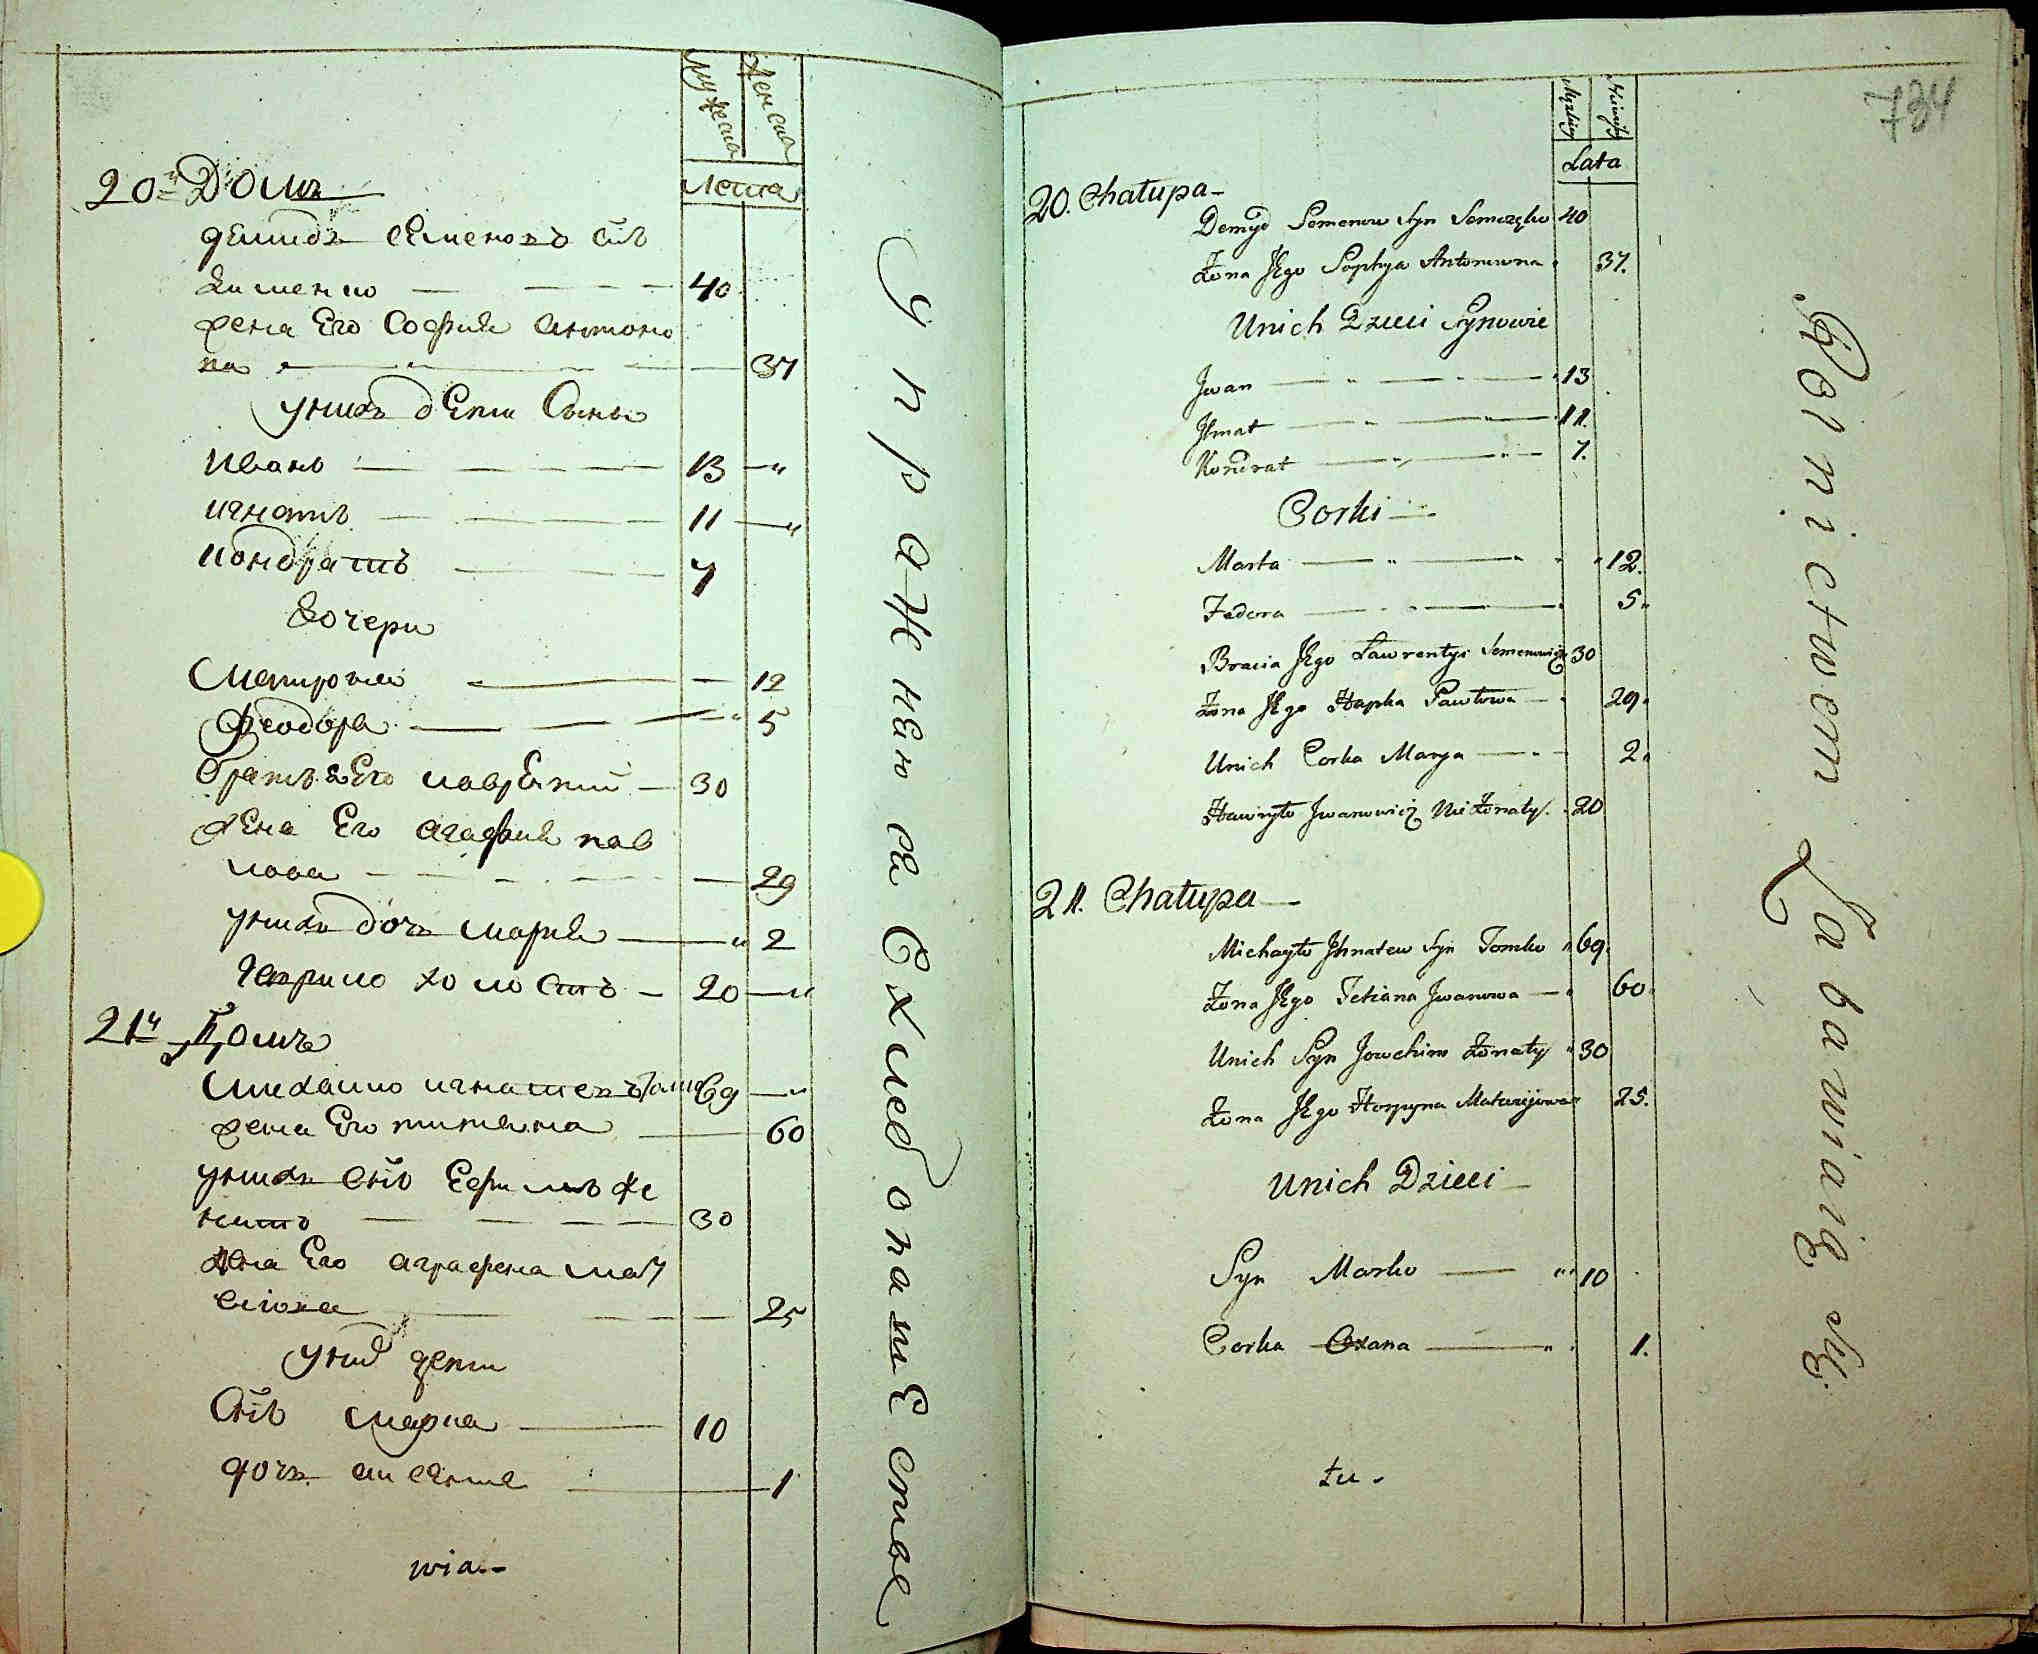 мужеска
женска
лета
20й Домъ
демидъ семеновъ снъ
40
жена Его София антоно
ва 37
уних дети Сыны
Иванъ 13
игнатъ 11
кондратъ 7
дочери
5
братъ Его лаврентий 30
жена Его агафия пав
лова 29
уних дочъ мария 2
гаврило холостъ 20
21й Домъ
михайло игнатевъ 69
жена Его татиана 60
уних снъ Ефимъ же
натъ 30
жена Его аграфена мат
25
уних дети
Снъ марка 10
дочъ 1
wia
упражнаюса Схлебопашестве
734
Męzkiey
Żeńskiey
Lata
20. Chałupa
Demyd Semenow Syn 40
Żona Jego Sophya Antonowna 37.
Unich Dzieci Synowie
Jwan 13
Jhnat 11.
Kondrat 7.
Corki
Marta 12.
Fedora 5.
Bracia Jego Ławrentyi Semenowicz 30
Żona Jego Hapka Pawłowa 29.
Unich Corka Marya 2.
Hawryło Jwanowicz Nieżonaty. 20
21. Chałupa
Michayło Jhnatew Syn Tomko 69.
Żona Jego Tetiana Jwanowa 60.
Unich Syn Jowchim Żonaty 30
Żona Jego Horpyna Matwijowa 25.
Unich Dzieci
Syn Marko 10
Corka Oxana 1.
tu.
Rolnictwem Zabawiaią się.